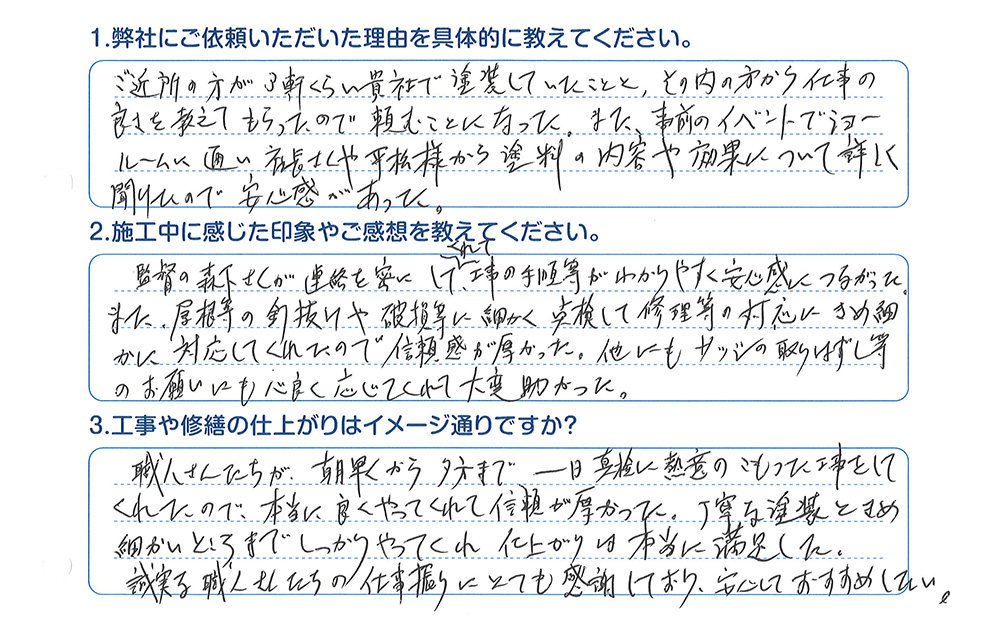 1.弊社にご依頼いただいた理由を具体的に教えてください。
ご近所の方が3軒くらい貴社で塗装していたことと、その内の方から仕事の
良さを教えてもらったので頼むことになった。また、事前のイベントでショー
ルームに通い社長さんや平松様から塗料の内容や効果について詳しく
聞けたので安心感があった。
2.施工中に感じた印象やご感想を教えてください。
監督の森下さんが連絡を密にしてくれて、工事の手順等がわかりやすく安心感につながった。
また、屋根等の釘抜けや破損等に細かく点検して修理等の対応にきめ細
かに対応してくれたので信頼感が厚かった。他にもサッシの取りはずし等
のお願いにも心良く応じてくれて大変助かった。
3.工事や修繕の仕上がりはイメージ通りですか?
職人さんたちが、朝早くから夕方まで一日真剣に熱意のこもった工事をして
くれたので、本当に良くやってくれて信頼が厚かった。丁寧な塗装ときめ
細かいところまでしっかりやってくれ仕上がりは本当に満足した。
誠実な職人さんたちの仕事振りにとても感謝しており、安心しておすすめしたい。